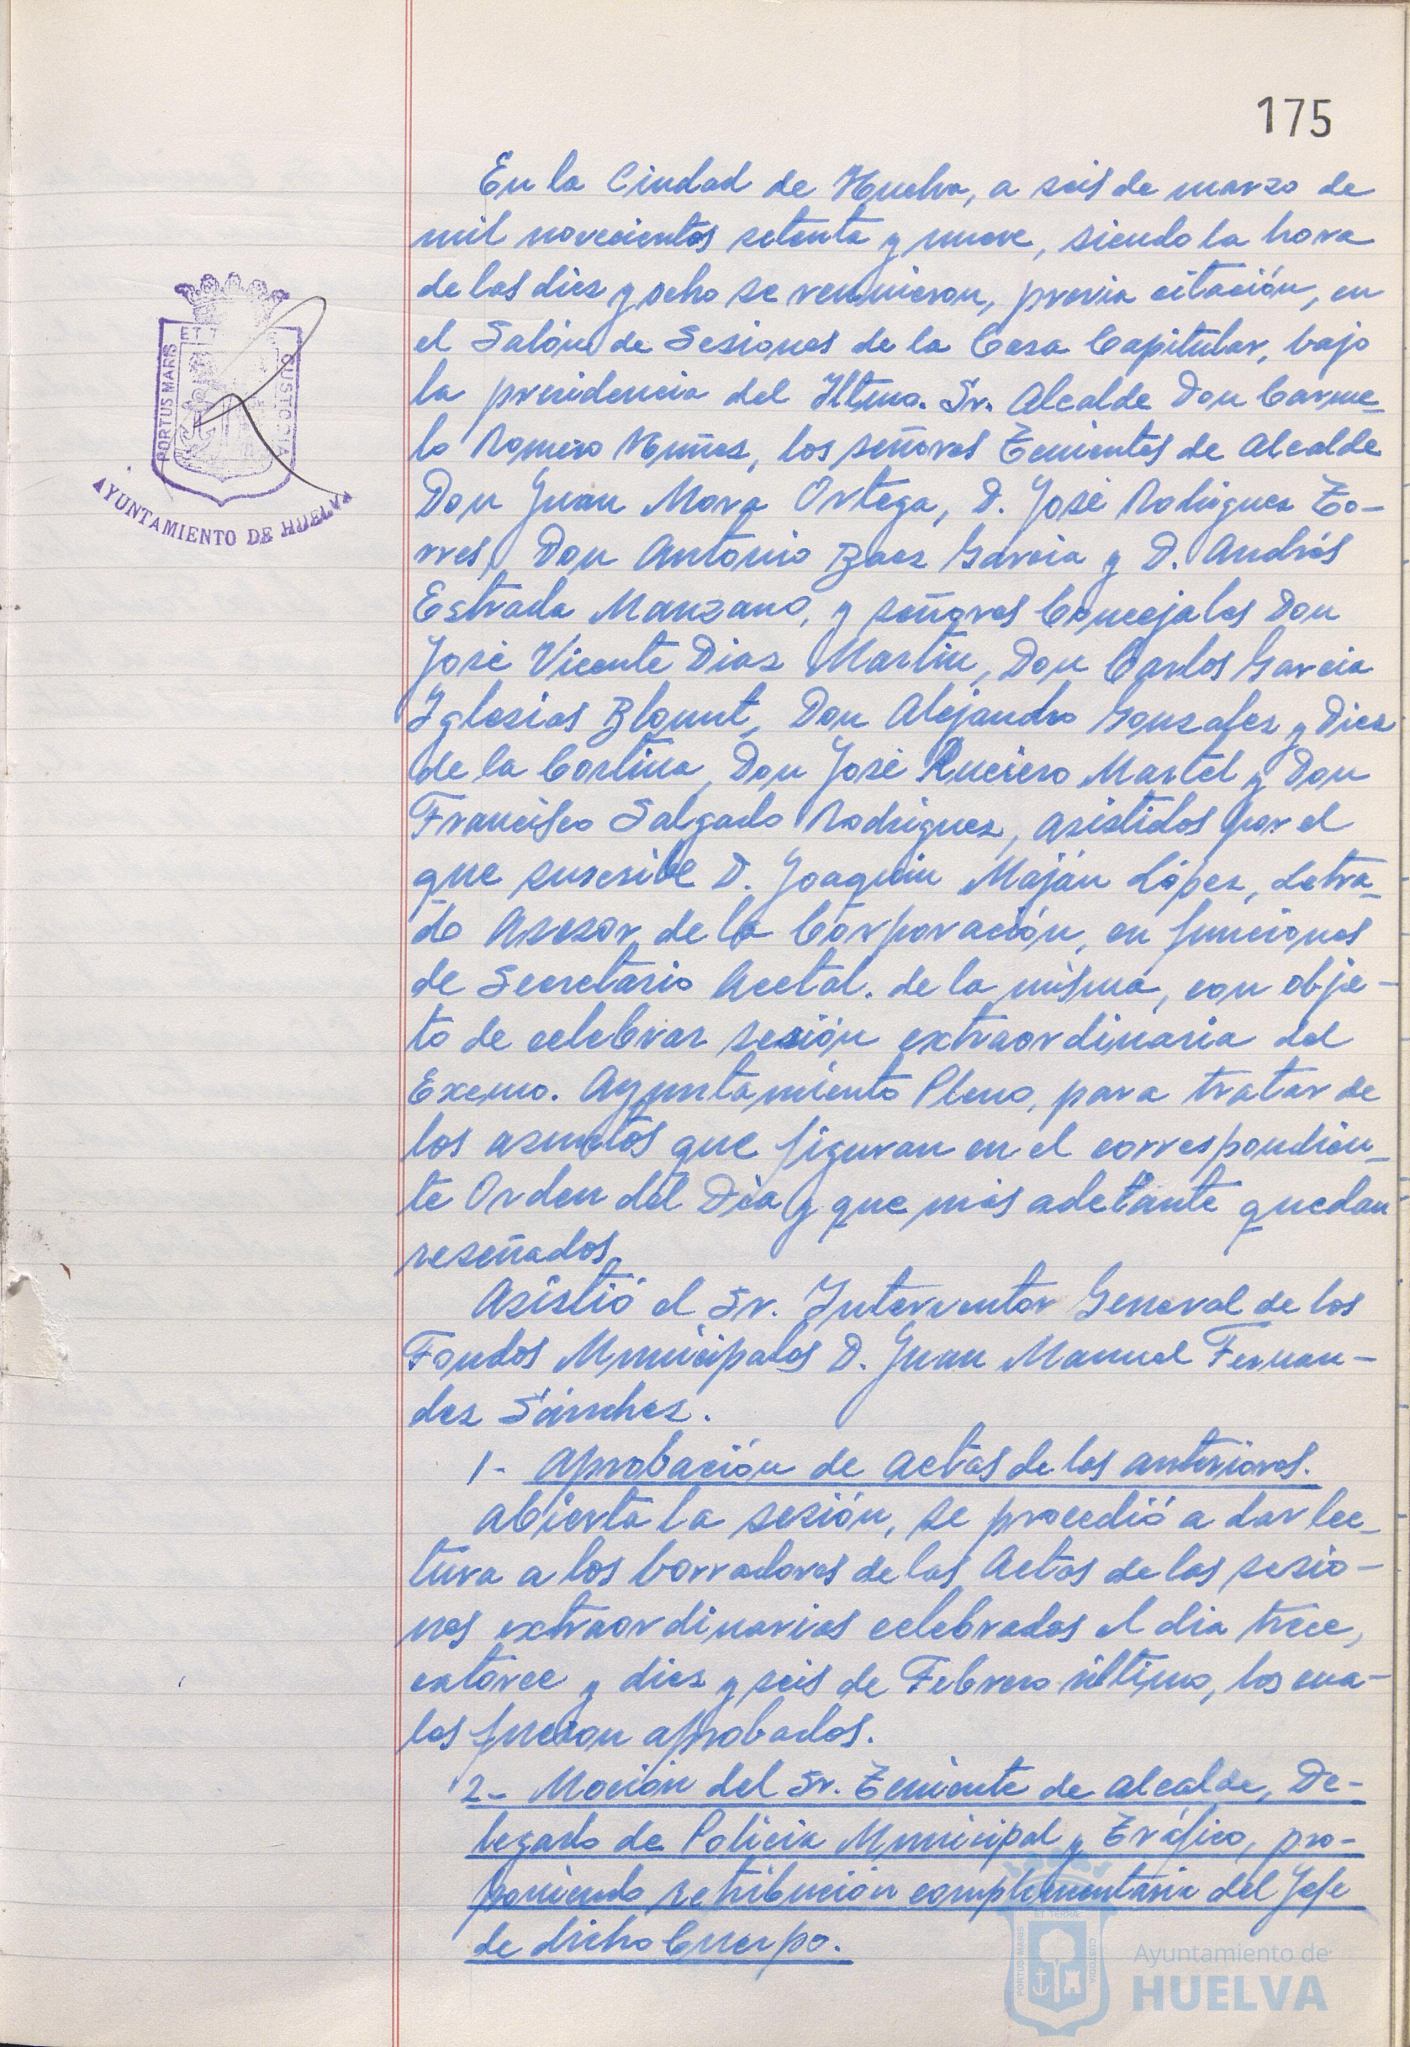 175
En la Ciudad de Huelva, a seis de marzo de
mil novecientos setenta y nueve, siendo la hora
de las diez y ocho se reunieron, previa citación, en
el Salón de Sesiones de la Casa Capitular, bajo
la presidencia del Iltmo. Sr. Alcalde Don Carme-
lo Romero Núñez, los señores Tenientes de Alcalde
Don Juan Mora Ortega, D. José Rodríguez To-
rres, Don Antonio Baez García y D. Andrés
Estrada Manzano, y señores Concejales Don
José Vicente Díaz Martín, Don Carlos García
Iglesias Blount, Don Alejandro Gonzalez y Diez
de la Cortina, Don José Ruciero Martel y Don
Francisco Salgado Rodríguez, asistidos por el
que suscribe D. Joaquín Maján López, Letra-
do Asesor de la Corporación, en funciones
de Secretario Acctal. de la misma, con obje-
to de celebrar sesión extraordinaria del
Excmo. Ayuntamiento Pleno, para tratar de
los asuntos que figuran en el correspondien-
te Orden del Día y que más adelante quedan
reseñados.
Asistió el Sr. Interventor General de los
Fondos Municipales D. Juan Manuel Fernan-
dez Sánchez.
1- Aprobación de actas de las anteriores.
Abierta la sesión, se procedió a dar lec-
tura a los borradores de las Actas de las sesio-
nes extraordinarias celebradas el dia trece,
catorce y diez y seis de Febrero último, los cua-
les fueron aprobados.
2- Moción del Sr. Teniente de Alcalde, De-
legado de Policia Municipal y Tráfico, pro-
poniendo retribución complementaria del Jefe
de dicho Cuerpo.
PORTUS MARIS
ET T
CUSTODIA
AYUNTAMIENTO DE HUELVA
PORTUS MARIS
ET TERRAE
CUSTODIA
Ayuntamiento de
HUELVA